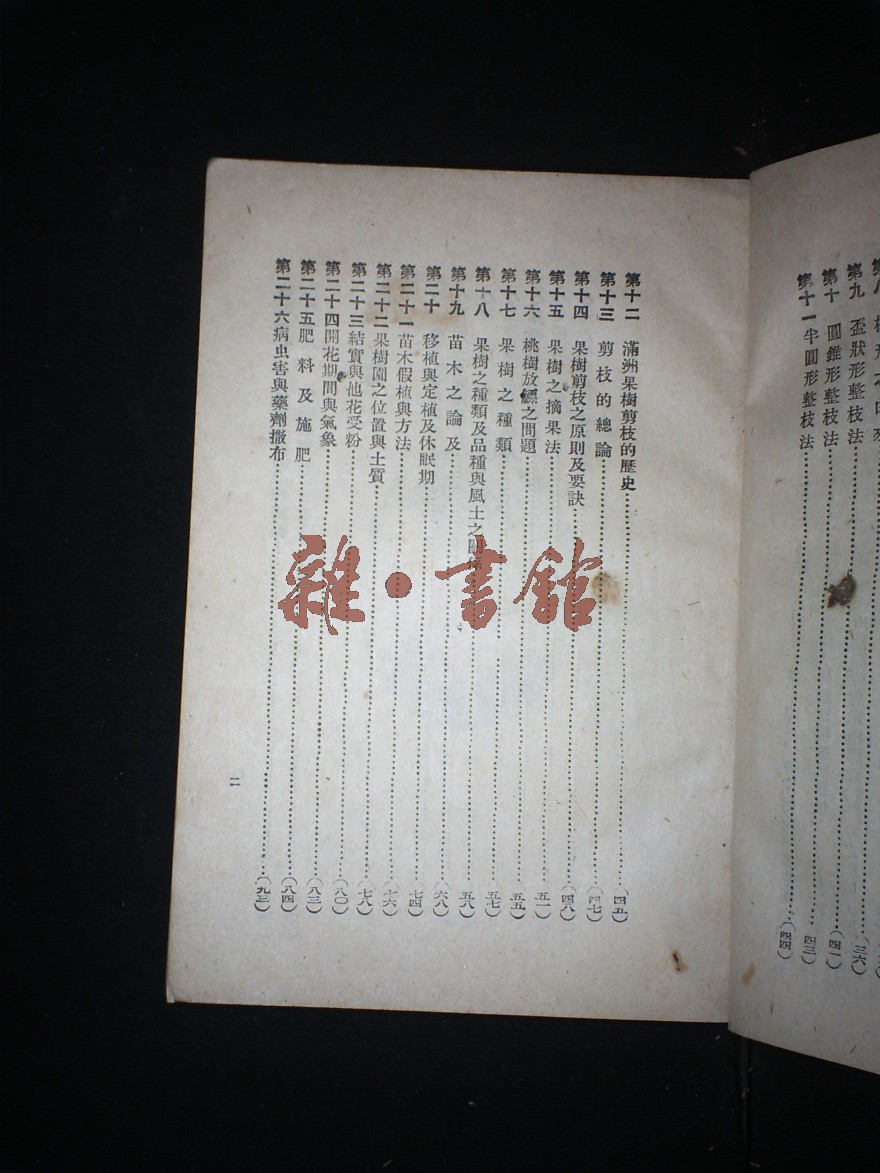 第九　盃狀形整枝法（三六）
第十　圓錐形整枝法（四一）
第十一　半圓形整枝法（四三）
（四四）
第十二　滿洲果樹剪枝的歷史（四五）
第十三　剪枝的總論（四七）
第十四　果樹剪枝之原則及要訣（四八）
第十五　果樹之摘果法（五一）
第十六　桃樹放任之問題（五五）
第十七　果樹之種類（五七）
第十八　果樹之種類及品種與風土之關係（五八）
第十九　苗木之論及（六八）
第二十　移植與定植及休眠期（七四）
第二十一　苗木假植與方法（七六）
第二十二　果樹園之位置與土質（七八）
第二十三　結實與他花受粉（八〇）
第二十四　開花期間與氣象（八三）
第二十五　肥料及施肥（八四）
第二十六　病虫害與藥劑撒布（九三）
二
雜·書館